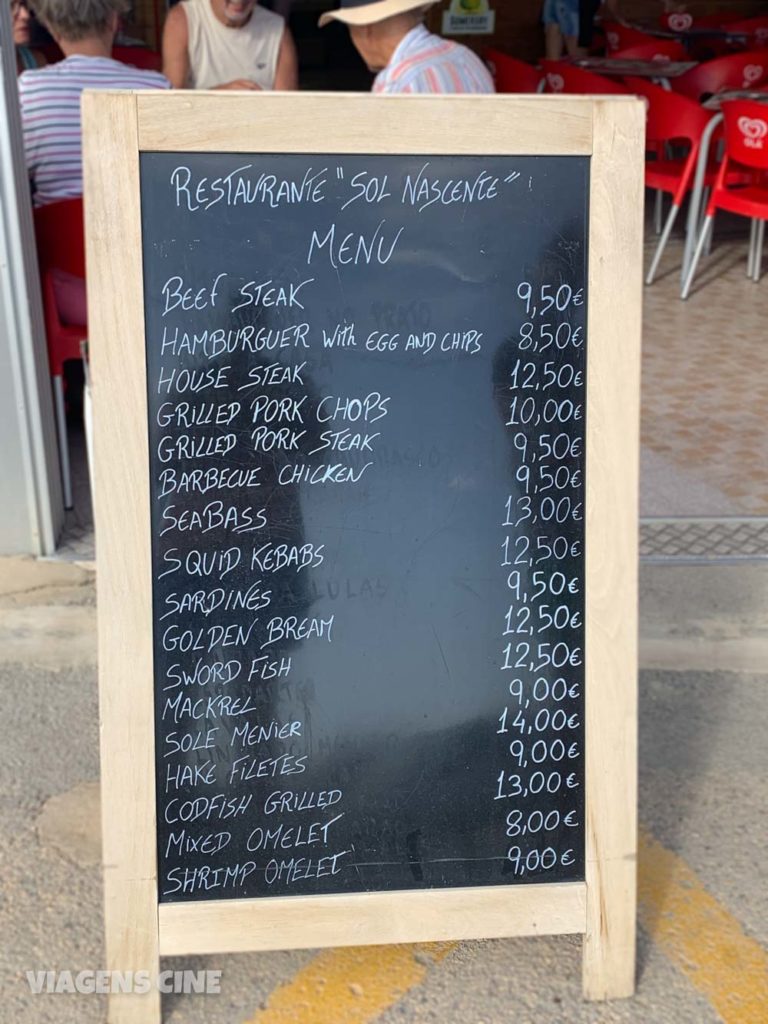 SOMERSBY
OLÁ
RESTAURANTE "SOL NASCENTE"
MENU
BEEF STEAK 9,50€
HAMBURGUER With EGG AND CHIPS 8,50€
HOUSE STEAK 12,50€
GRILLED PORK CHOPS 10,00€
GRILLED PORK STEAK 9,50€
BARBECUE CHICKEN 9,50€
SEABASS 13,00€
SQUID KEBABS 12,50€
SARDINES 9,50€
GOLDEN BREAM 12,50€
SWORD FISH 12,50€
MACKREL 9,00€
SOLE MENIER 14,00€
HAKE FILETES 9,00€
CODFISH GRILLED 13,00€
MIXED OMELET 8,00€
SHRIMP OMELET 9,00€
VIAGENS CINE